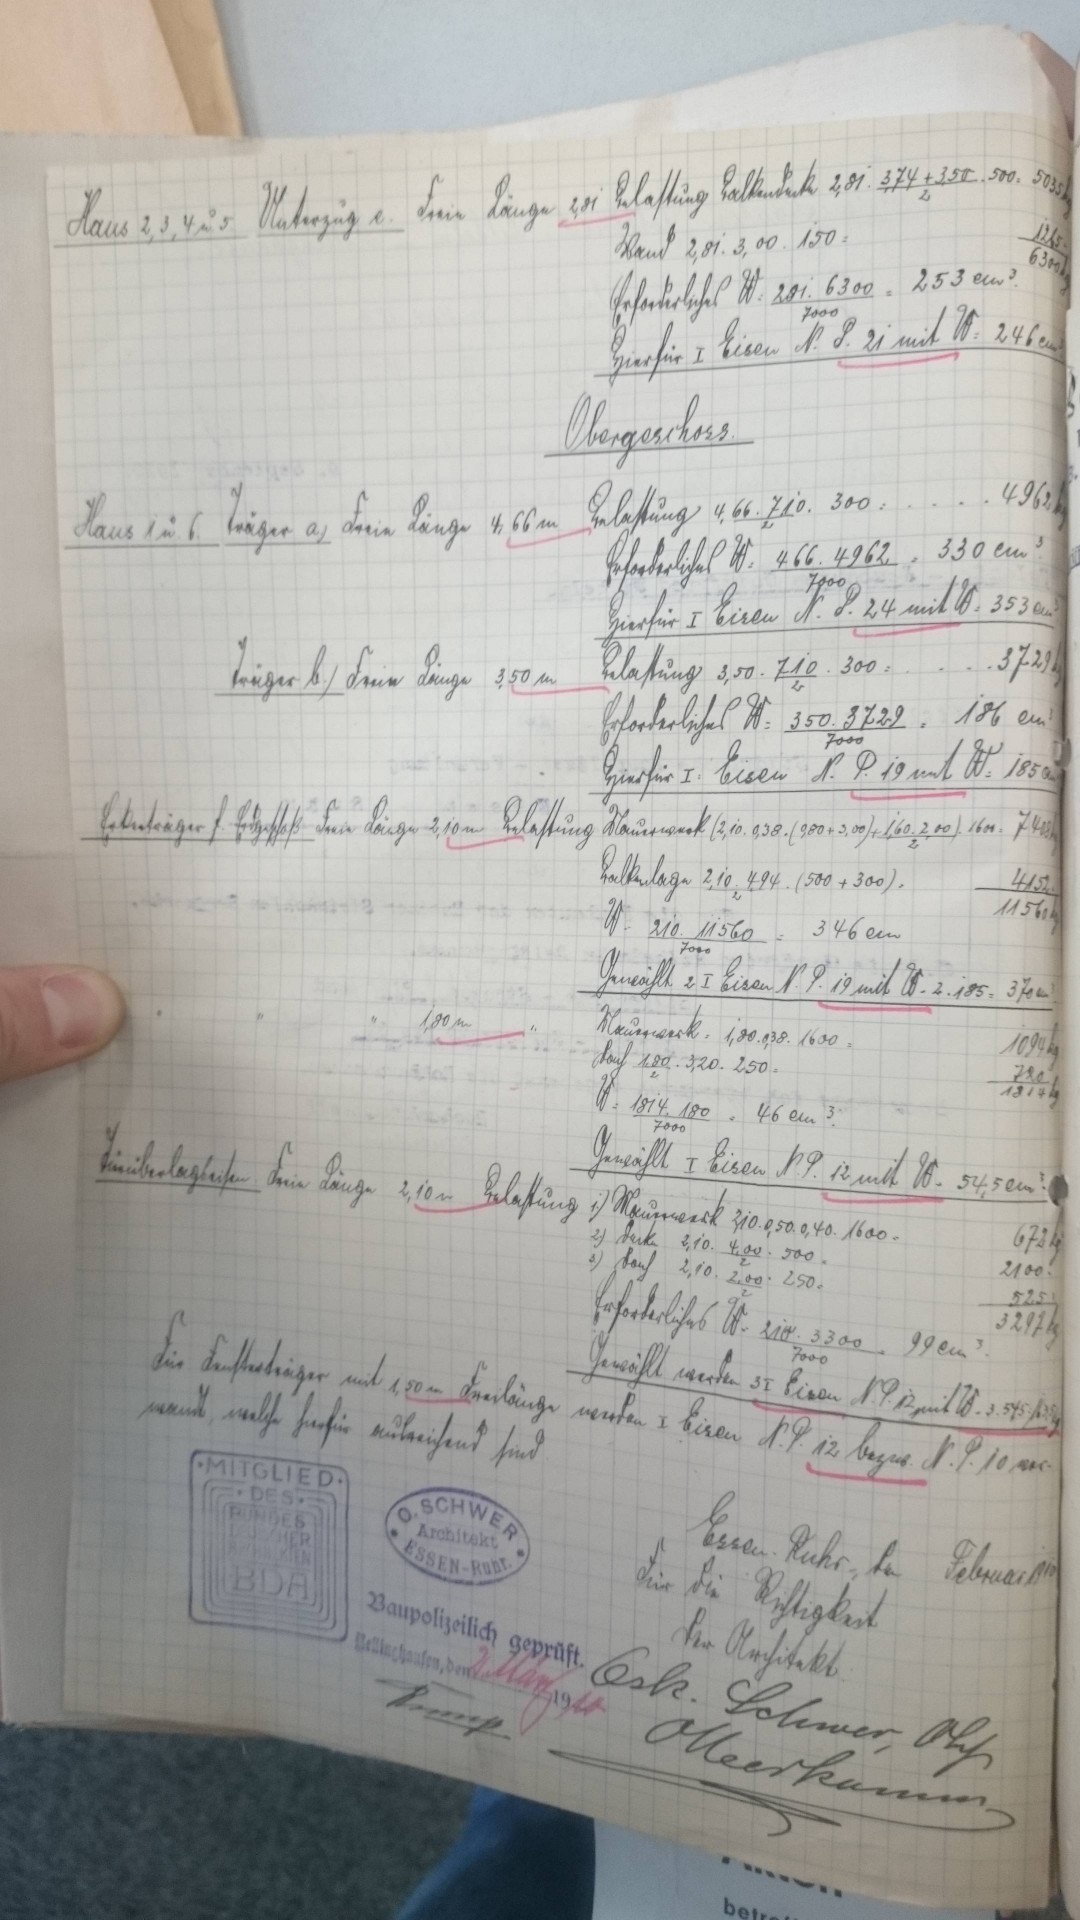 Haus 2, 3, 4 u. 5 Unterzug c. Freie Länge 2,81 Belastung Balkendecke 2,81 . (3,74 + 3,50)/2 . 500 = 5035 kg
Wand 2,81 . 3,00 . 150 = 1265 "
6300 kg
Erforderliches W = (281 . 6300)/7000 = 253 cm³.
Hierfür I Eisen N. P. 21 mit W = 246 cm³
Obergeschoss.
Haus 1 u. 6. Träger a) Freie Länge 4,66 m Belastung 4,66 . 7,10/2 . 300 = . . . . 4962 kg
Erforderliches W = (466 . 4962)/7000 = 330 cm³
Hierfür I Eisen N. P. 24 mit W = 353 cm³
Träger b.) Freie Länge 3,50 m Belastung 3,50 . 7,10/2 . 300 = . . . . 3729 kg
Erforderliches W = (350 . 3729)/7000 = 186 cm³
Hierfür I Eisen N. P. 19 mit W = 185 cm³
Erkerträger f. Erdgeschoß Freie Länge 2,10 m Belastung Mauerwerk (2,10 . 0,38 . (0,80 + 3,00) + (1,60 . 2,00)/2) . 1600 = 7408 kg
Balkenlage 2,10 . 4,94/2 . (500 + 300) = 4152 "
11560 kg
W = (210 . 11560)/7000 = 346 cm
Gewählt 2 I Eisen N. P. 19 mit W = 2 . 185 = 370 cm³
" " " 1,80 m " Mauerwerk = 1,80 . 0,38 . 1600 = 1094 kg
Dach 1,80/2 . 3,20 . 250 = 720 "
1814 kg
W = (1814 . 180)/7000 = 46 cm³.
Gewählt I Eisen N. P. 12 mit W = 54,5 cm³.
Türüberlageisen. Freie Länge 2,10 m Belastung 1) Mauerwerk 2,10 . 0,50 . 0,40 . 1600 = 672 kg
2) Decke 2,10 . 4,00/2 . 500 = 2100 "
3) Dach 2,10 . 2,00/2 . 250 = 525 "
3297 kg
Erforderliches W = (210 . 3300)/7000 = 99 cm³.
Gewählt werden 3 I Eisen N. P. 12 mit W = 3 . 54,5
Für Fensterträger mit 1,50 m Freilänge werden I Eisen N. P. 12 bezw. N. P. 10 ver-
wandt, welche hierfür ausreichend sind.
MITGLIED
DES
BUNDES
DEUTSCHER
ARCHITEKTEN
BDA
O. SCHWER
Architekt
ESSEN-Ruhr.
Essen-Ruhr, den Februar
Für die Richtigkeit
Der Architekt.
Baupolizeilich geprüft.
den 2. März 19
Osk. Schwer,
betre